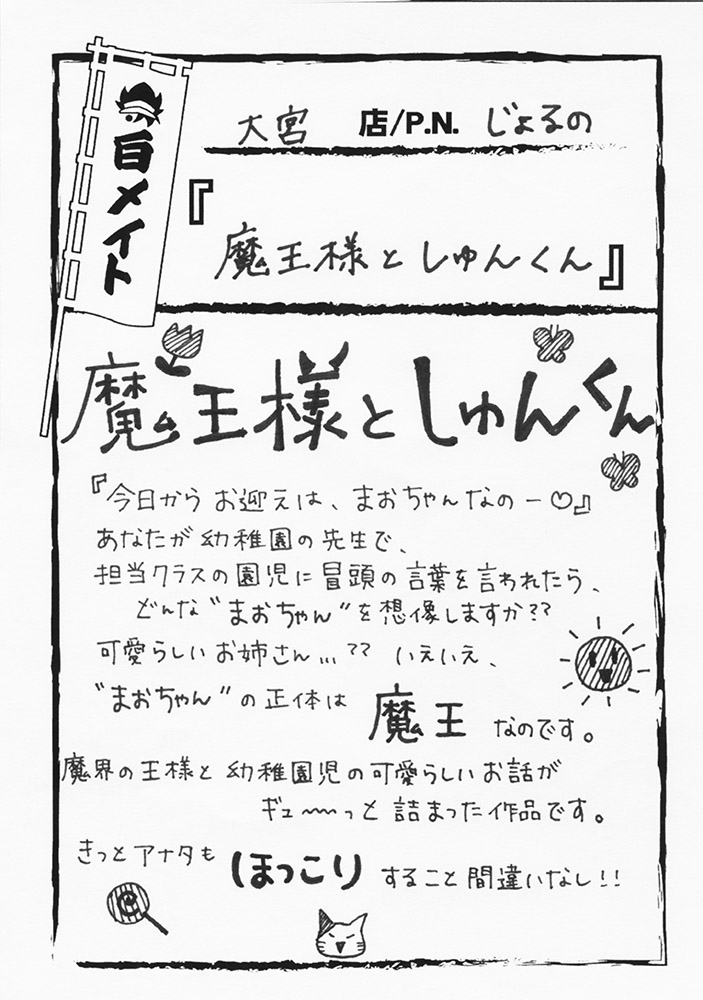 白メイト
大宮 店/P.N. じょるの
『魔王様としゅんくん』
魔王様としゅんくん
『今日からお迎えは、まおちゃんなのー♡』
あなたが幼稚園の先生で、
担当クラスの園児に冒頭の言葉を言われたら、
どんな“まおちゃん”を想像しますか??
可愛らしいお姉さん...?? いえいえ、
“まおちゃん”の正体は 魔王 なのです。
魔界の王様と幼稚園児の可愛らしいお話が
ギュ〜〜っと詰まった作品です。
きっとアナタも ほっこり すること間違いなし!!